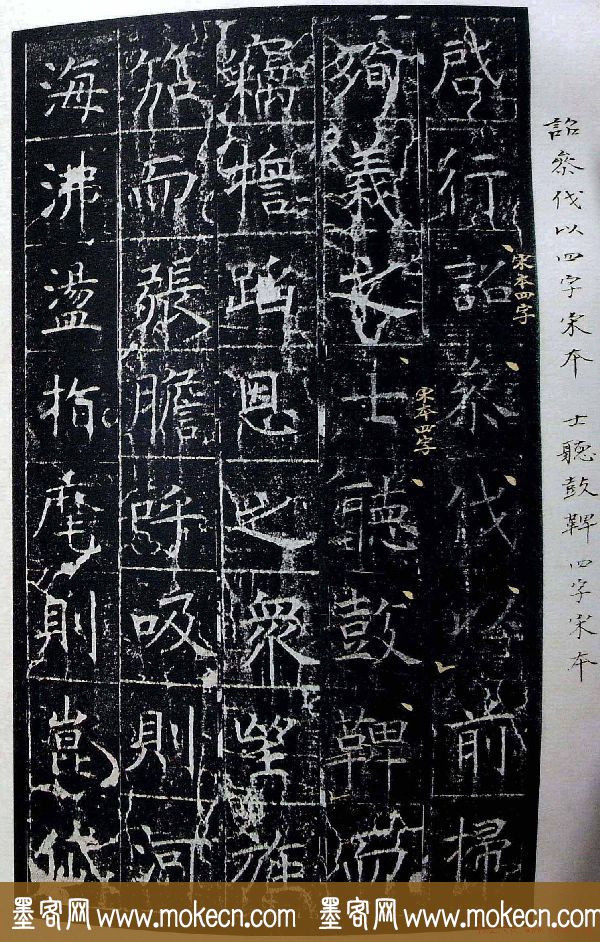 詔叅伐以四字宋本 士聽鼓鞞四字宋本
啓行詔叅伐以前掃
宋本四字
殉義之士聽鼓鞞而
宋本四字
蹈恩之衆望旌
而張膽呼吸則河
海沸盪指麾則嵩岱
墨客网 www.mokecn.com 墨客网 www.mokecn.com